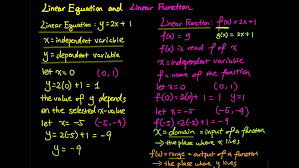 Linear Equation and Linear Function
Linear Equation: y=2x+1
x=independent variable
y=dependent variable
let x=0 (0,1)
y=2(0)+1=1
the value of y depends
on the selected x-value
let x=-5 (-5,-9)
y=2(-5)+1=-9
y=-9
Linear Function: f(x)=2x+1
f(x)=y g(x)=2x+1
f(x) is read f of x
x=independent variable
f=name of the function
let x=0 (0,1)
f(0)=2(0)+1=1 y=1
let x=-5 (-5,-9)
f(-5)=2(-5)+1=-9
x=domain=input of a function
→ the place where x lives
f(x)=range=output of a function
→ the place where y lives